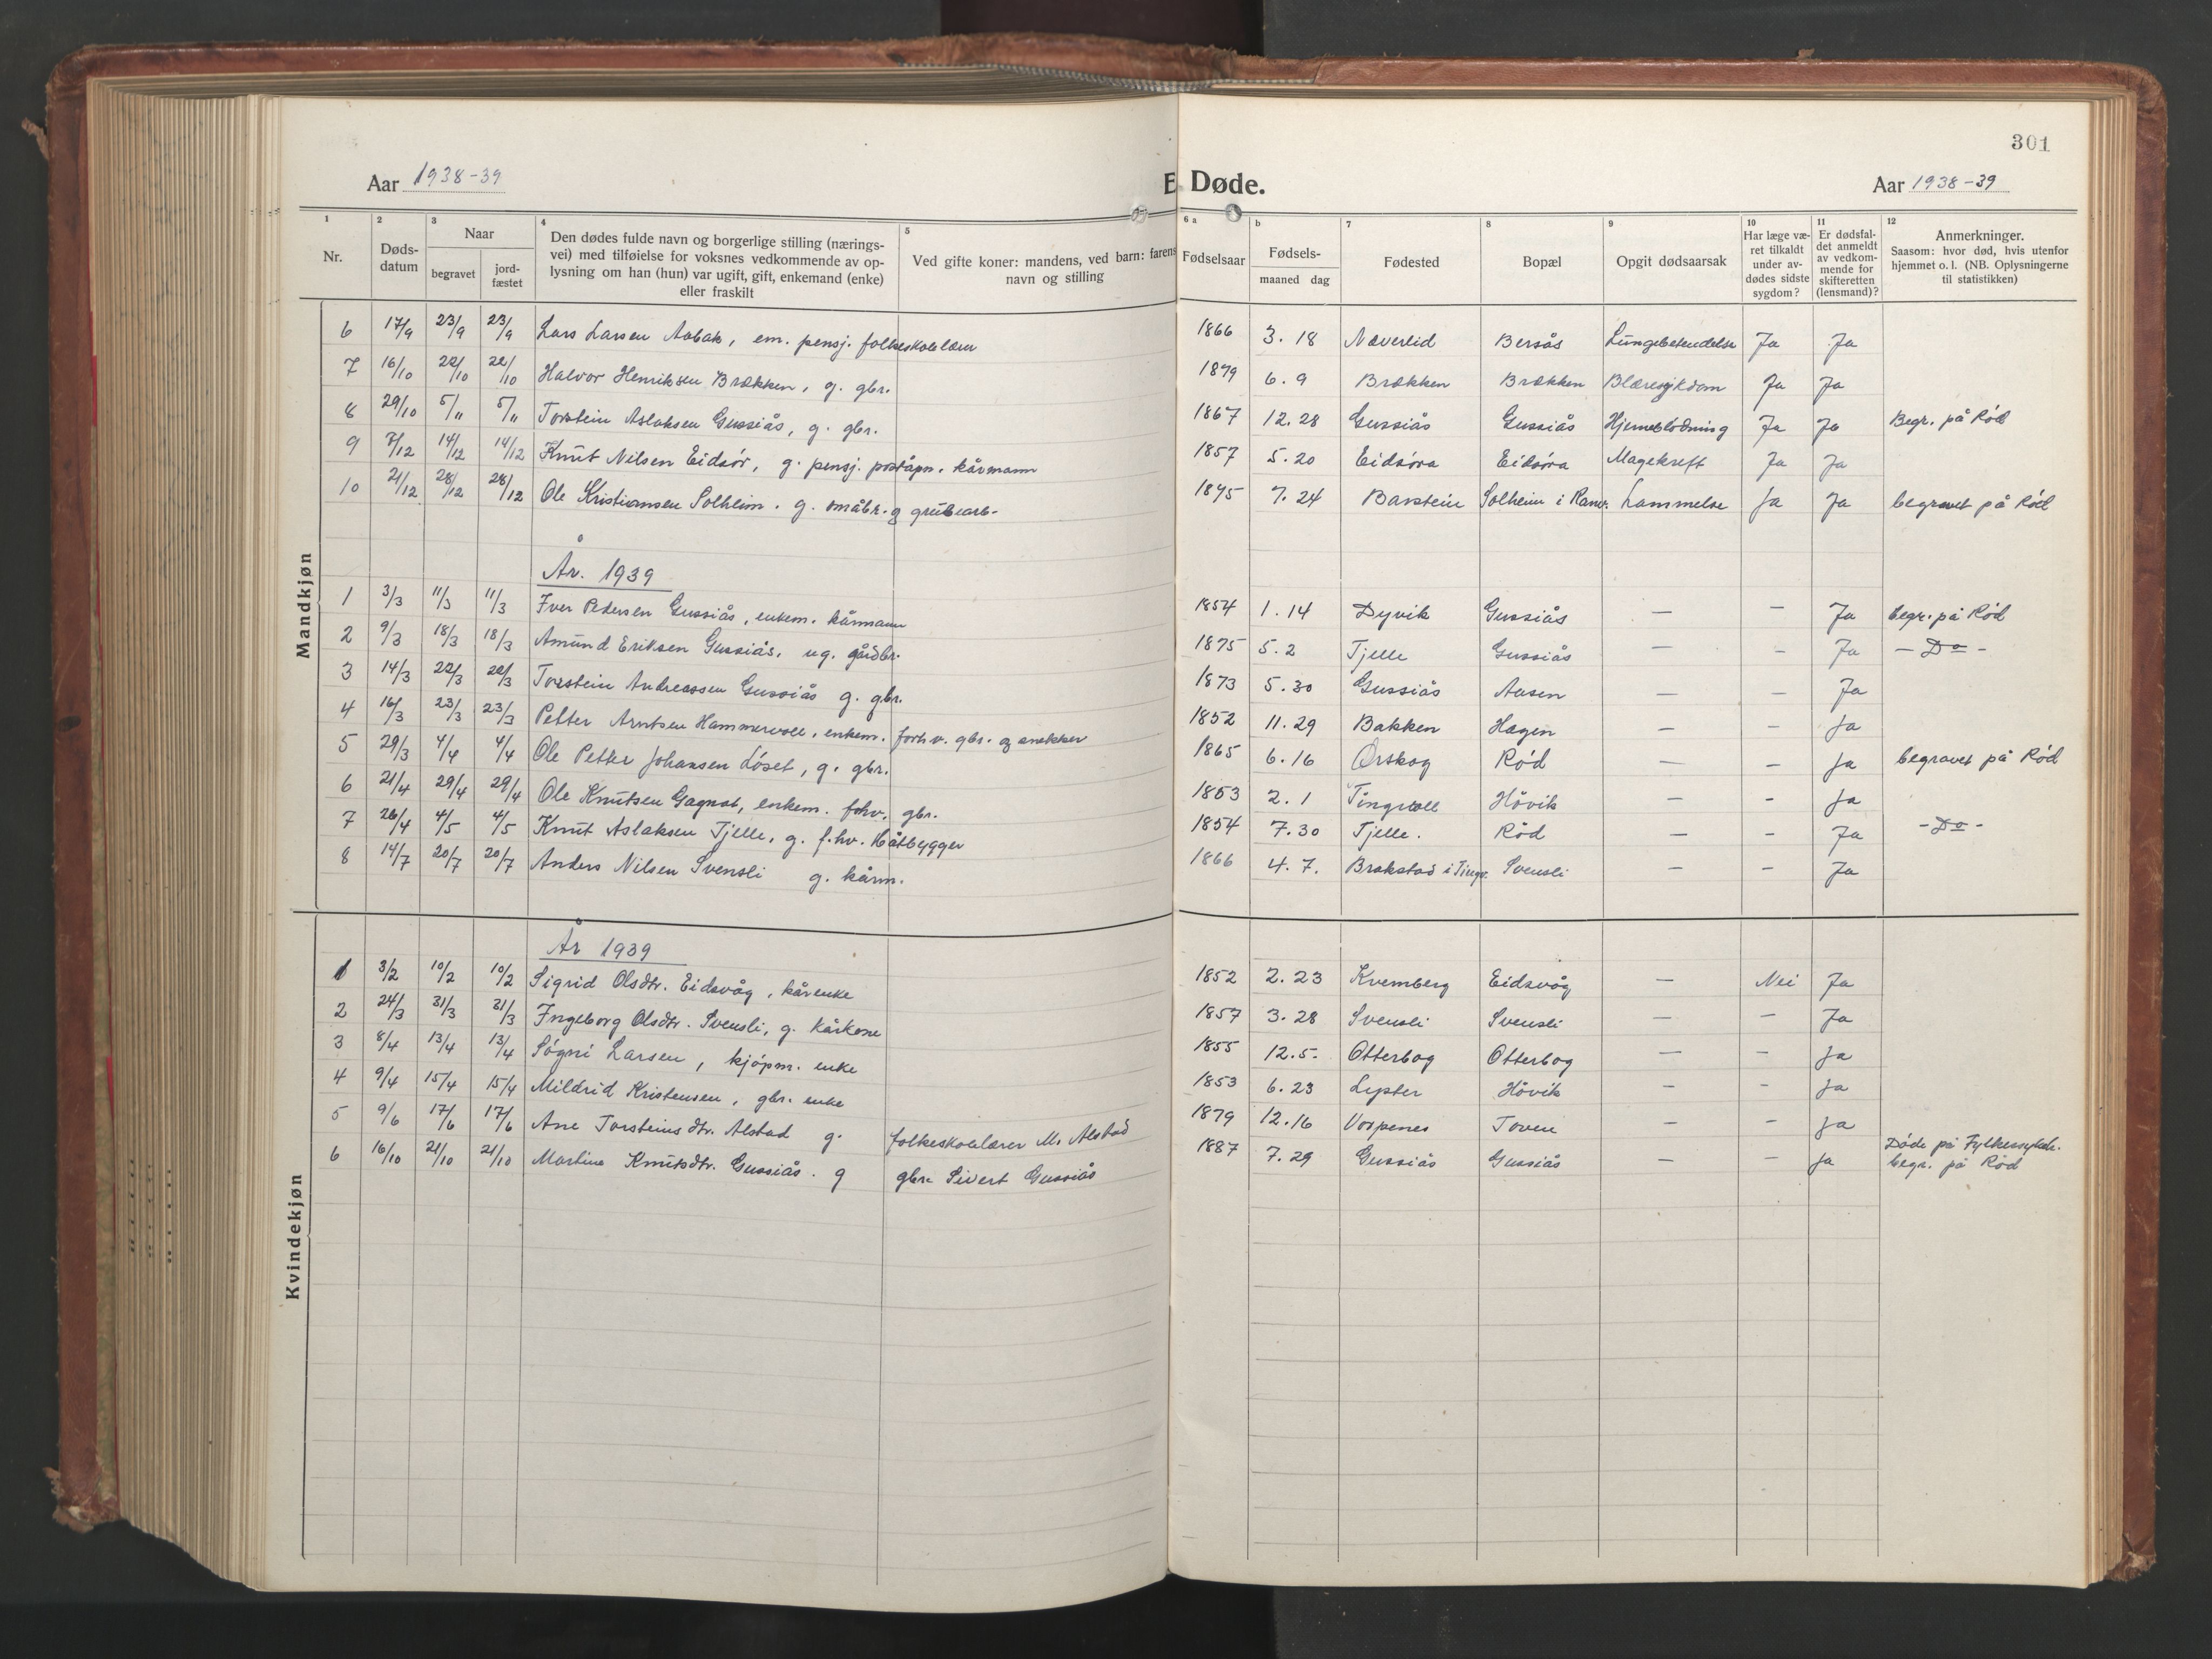 301
Aar 1938-39
E. Døde.
Aar 1938-39
1 2 3 4 5 6 a b 7 8 9 10 11 12
Nr.
Døds-datum
Naar
begravet
jord-fæstet
Den dødes fulde navn og borgerlige stilling (nærings-
vei) med tilføielse for voksnes vedkommende av op-
lysning om han (hun) var ugift, gift, enkemand (enke)
eller fraskilt
Ved gifte koner: mandens, ved barn: farens
navn og stilling
Fødselsaar
Fødsels-
maaned dag
Fødested
Bopæl
Opgit dødsaarsak
Har læge væ-
ret tilkaldt
under av-
dødes sidste
sygdom?
Er dødsfal-
det anmeldt
av vedkom-
mende for
skifteretten
(lensmand)?
Anmerkninger.
Saasom: hvor død, hvis utenfor
hjemmet o. l. (NB. Oplysningerne
til statistikken)
Mandkjøn
6 17/9 23/9 23/9 Lars Larsen Aabak, em. pensj. folkeskolelær 1866 3. 18 Næverlid Bersås Lungebetendelse Ja Ja
7 16/10 22/10 22/10 Halvor Henriksen Brækken, g. gbr. 1879 6. 9 Brækken Brækken Blæresykdom Ja Ja
8 29/10 5/11 5/11 Torstein Aslaksen Gussiås, g. gbr. 1867 12. 28 Gussiås Gussiås Hjerneblödning Ja Ja Begr. på Rød
9 7/12 14/12 14/12 Knut Nilsen Eidsör, g. pensj. poståpn. kårmann 1857 5. 20 Eidsöra Eidsöra Magekreft Ja Ja
10 21/12 28/12 28/12 Ole Kristiansen Solheim. g. småbr. og grubearb- 1875 7. 24 Barstein Solheim i Lammelse Ja Ja begravet på Rød
År. 1939
1 3/3 11/3 11/3 Iver Pedersen Gussiås, enkem. kårmann 1854 1. 14 Dyvik Gussiås — — Ja begr. på Rød
2 9/3 18/3 18/3 Amund Eriksen Gussiås, ug. gårdbr. 1875 5. 2 Tjelle Gussiås — — Ja - Do -
3 14/3 22/3 22/3 Torstein Andreassen Gussiås g. gbr. 1873 5. 30 Gussiås Aasen — — Ja
4 16/3 23/3 23/3 Petter Arntsen Hammervoll, enkem. forhv. gbr. og snekker 1852 11. 29 Bakken Hagen — — Ja
5 29/3 4/4 4/4 Ole Petter Johansen Löset, g. gbr. 1865 6. 16 Ørskog Rød — — Ja begravet på Rød
6 21/4 29/4 29/4 Ole Knutsen Gagnat, enkem. fohv. gbr. 1853 2. 1 Tingvoll Hövik — — Ja
7 26/4 4/5 4/5 Knut Aslaksen Tjelle, g. f.hv. båtbygger 1854 7. 30 Tjelle. Rød — — Ja - Do -
8 14/7 20/7 20/7 Anders Nilsen Svensli g. kårm. 1866 4. 7. Brakstad i Tingv. Svensli — — Ja
Kvindekjøn
År 1939
1 3/2 10/2 10/2 Sigrid Olsdtr. Eidsvåg, kårenke 1852 2. 23 Kvernberg Eidsvåg — Nei Ja
2 24/3 31/3 31/3 Ingeborg Olsdtr. Svensli, g. kårkone 1857 3. 28 Svensli Svensli — — Ja
3 8/4 13/4 13/4 Sögni Larsen, kjöpm. enke 1855 12. 5. Otterbog Otterbog — — Ja
4 9/4 15/4 15/4 Mildrid Kristensen, gbr. enke 1853 6. 23 Hövik — — Ja
5 9/6 17/6 17/6 Ane Torsteinsdtr. Alstad g. folkeskolelærer M. Alstad 1879 12. 16 Vorpenes Toven — — Ja
6 16/10 21/10 21/10 Martine Knutsdtr. Gussiås. g gbr. Sivert Gussiås 1887 7. 29 Gussiås Gussiås — — Ja Döde på Fylkessykeh. begr. på Rød